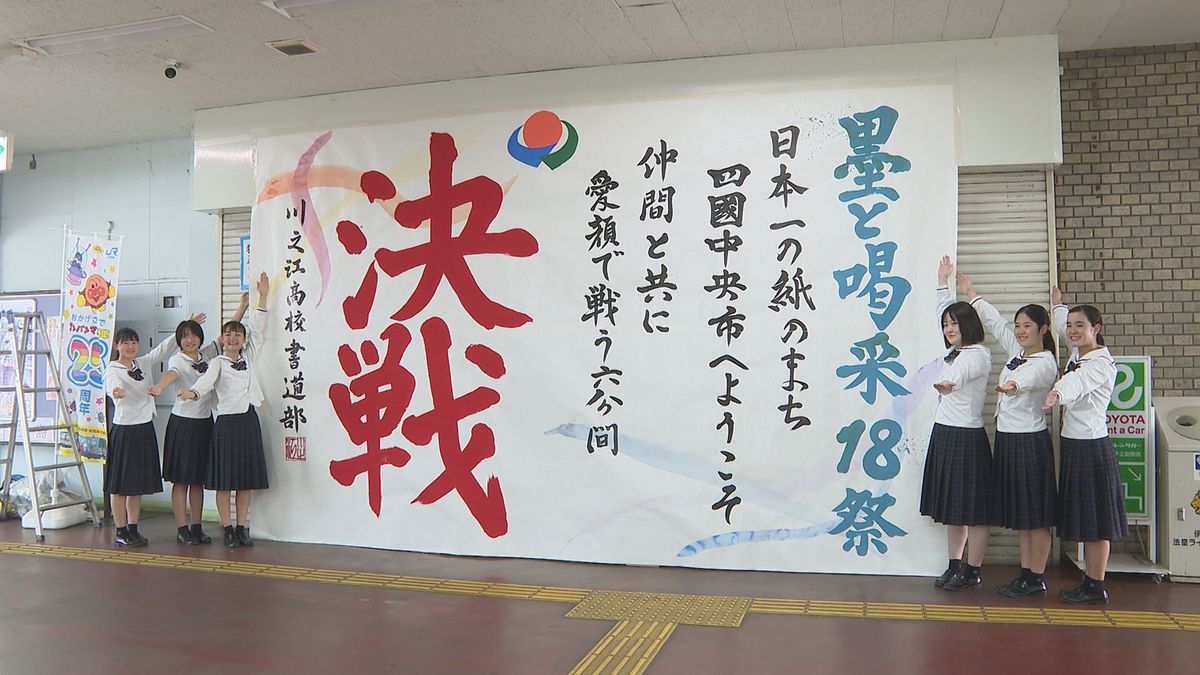 墨と喝采18祭
日本一の紙のまち
四國中央市へようこそ
仲間と共に
愛顔で戦う六分間
決戦
川之江高校書道部
JR
おかげさまで
25
周年
TOYOTA
Rent a Car